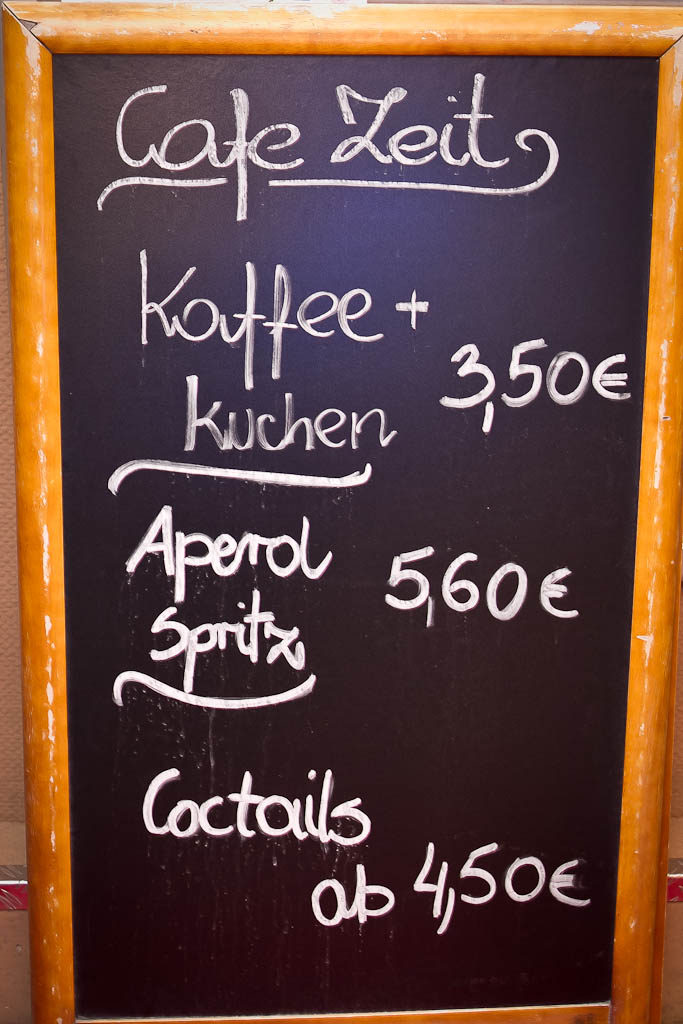 Cafe Zeit
Kaffee +
Kuchen 3,50€
Aperol
Spritz 5,60€
Coctails
ab 4,50€